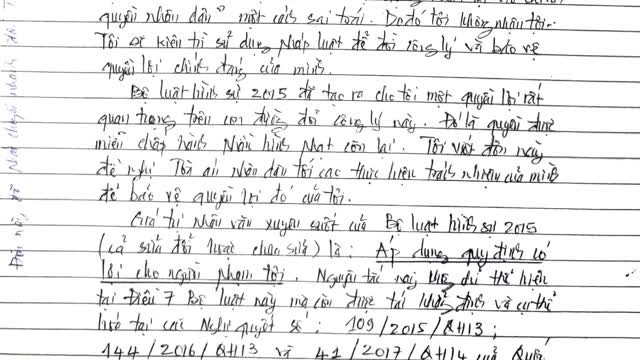 quyền nhân dân" một cách sai trái. Do đó tôi không nhận tội.
Tôi sẽ kiên trì sử dụng pháp luật để đòi công lý và bảo vệ
quyền lợi chính đáng của mình.
Bộ luật hình sự 2015 đã tạo ra cho tôi một quyền lợi rất
quan trọng trên con đường đòi công lý này. Đó là quyền được
miễn chấp hành phần hình phạt còn lại. Tôi viết đơn này
đề nghị Tòa án nhân dân tối cao thực hiện trách nhiệm của mình
để bảo vệ quyền lợi đó của tôi.
Giá trị nhân văn xuyên suốt của Bộ luật hình sự 2015
(cả sửa đổi hoặc chưa sửa) là: Áp dụng quy định có
lợi cho người phạm tội. Nguyên tắc này không chỉ thể hiện
tại Điều 7 Bộ luật này mà còn được tái khẳng định và cụ thể
hóa tại các Nghị quyết số: 109/2015/QH13;
144/2016/QH13 và 41/2017/QH14 của Quốc